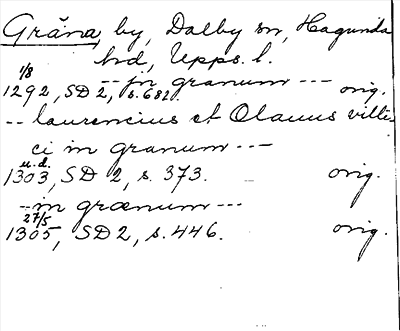 Gråna, by, Dalby sn, Hagunda
hd, Upps. l.
-- in granum --- orig.
1/8
1292, SD 2, s. 682.
-- laurencius et Olauus villi-
ci in granum ---
u.d.
1303, SD 2, s. 373. orig.
-- in grœnum ---
27/5
1305, SD 2, s. 446. orig.